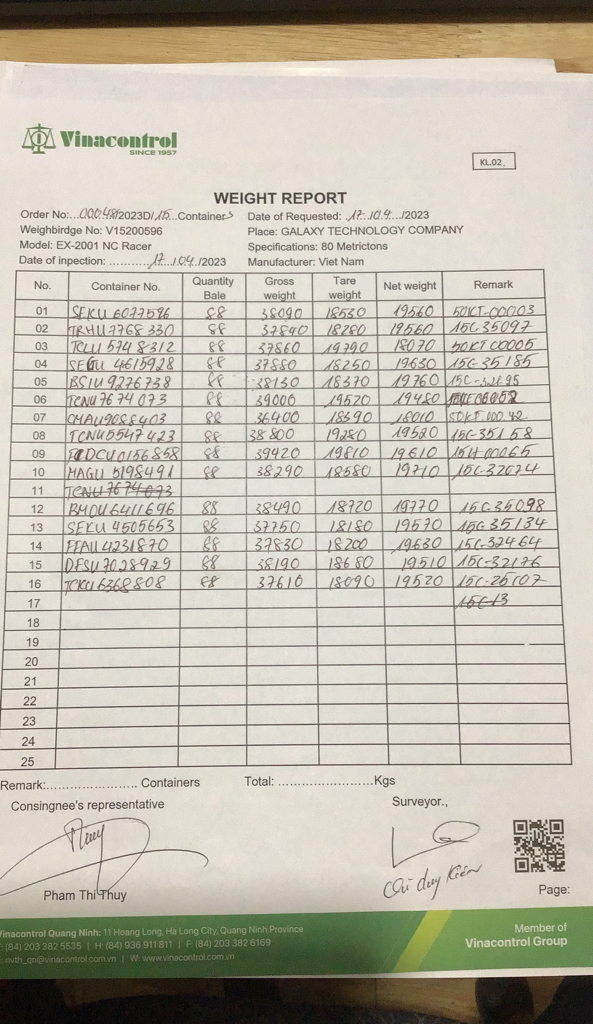 Vinacontrol
SINCE 1957
KL.02
WEIGHT REPORT
Order No:...00048/2023D/15...Containers Date of Requested: 17./04.../2023
Weighbirdge No: V15200596 Place: GALAXY TECHNOLOGY COMPANY
Model: EX-2001 NC Racer Specifications: 80 Metrictons
Date of inpection: ...........17../04./2023 Manufacturer: Viet Nam
No. Container No. Quantity Bale Gross weight Tare weight Net weight Remark
01 SEKU 6077596 88 38090 18530 19560 50KT-00003
02 TRHU7768330 88 37840 18280 19560 15C-35097
03 TCLU 5748312 88 37860 19790 18070 50KT00005
04 SEGU 4615928 88 37880 18250 19630 15C-35185
05 BSIU9276738 88 38130 18370 19760
06 TCNU7674073 88 39000 19520 19480
07 CMAU9088403 88 36400 18390 18010
08 TCNU5547423 88 38800 19280 19520 15C-35158
09 FDCU0156858 88 39420 19810 19610
10 MAGU 5198491 88 38290 18580 19710 15C-32074
11 TCNU7674073
12 BMOU6411696 88 38490 18720 19770 15C-35098
13 SEKU 4505653 88 37750 18180 19570 15C-35134
14 FFAU4231870 88 37830 18200 19630 15C-32464
15 DFSU7028929 88 38190 18680 19510 15C-32176
16 TCKU6368808 88 37610 18090 19520 15C-26107
17 15C-13
18
19
20
21
22
23
24
25
Remark:....................... Containers Total: ........................Kgs
Consingnee's representative Surveyor.,
Thuy
Pham Thi Thuy Chu duy Kiên Page:
Vinacontrol Quang Ninh: 11 Hoang Long, Ha Long City, Quang Ninh Province
(84) 203 382 5535 | H: (84) 936 911 811 | F: (84) 203 382 6169
nvth_qn@vinacontrol.com.vn | W: www.vinacontrol.com.vn
Member of
Vinacontrol Group